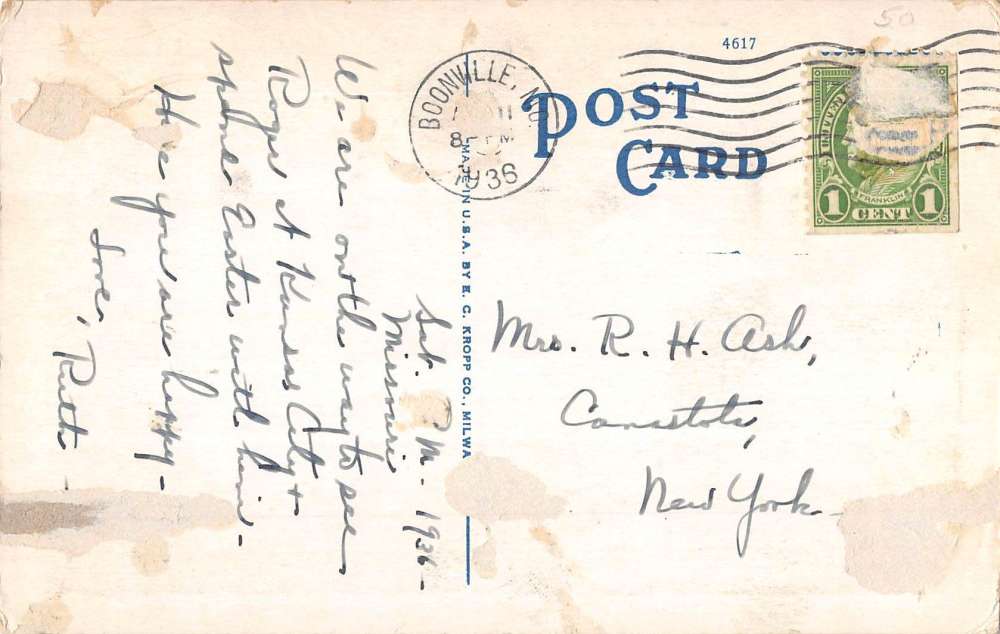 50
4617
POST
CARD
BOONVILLE, MO
11
8 PM
1936
UNITED
FRANKLIN
1 CENT 1
MADE IN U.S.A. BY E. C. KROPP CO., MILWA
Sat. P.M. - 1936 -
Missouri
We are on the way to see
Roger at Kansas City +
spend Easter with him -
Hope you are happy -
Love, Ruth -
Mrs. R. H. Ash,
Canastota,
New York